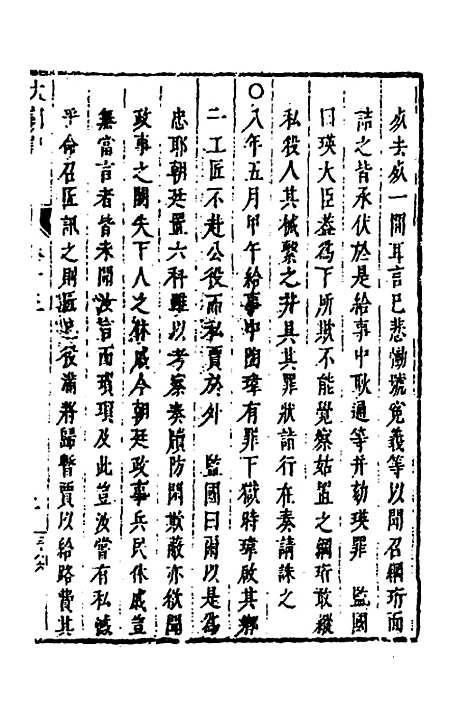 欤去欤一間耳言已悲慟號寃義等以聞召綱珩面
詰之皆承伏於是給事中耿通等并劾瑛罪　監國
曰瑛大臣葢爲下所欺不能覺察姑置之綱珩敢縱
私役人其械繫之并具其罪狀請行在奏請誅之
○八年五月甲午給事中陶瑋有罪下獄時瑋啟其鄉
二工匠不赴公役而私賈於外　監國曰爾以是爲
忠耶朝廷置六科雖以考察奏牘防閑欺蔽亦欲聞
政事之闕失下人之休戚今朝廷政事兵民休戚豈
無當言者皆未聞汝言而瑣瑣及此豈汝嘗有私憾
乎命召匠訊之則匠已役滿將歸暫賈以給路費其